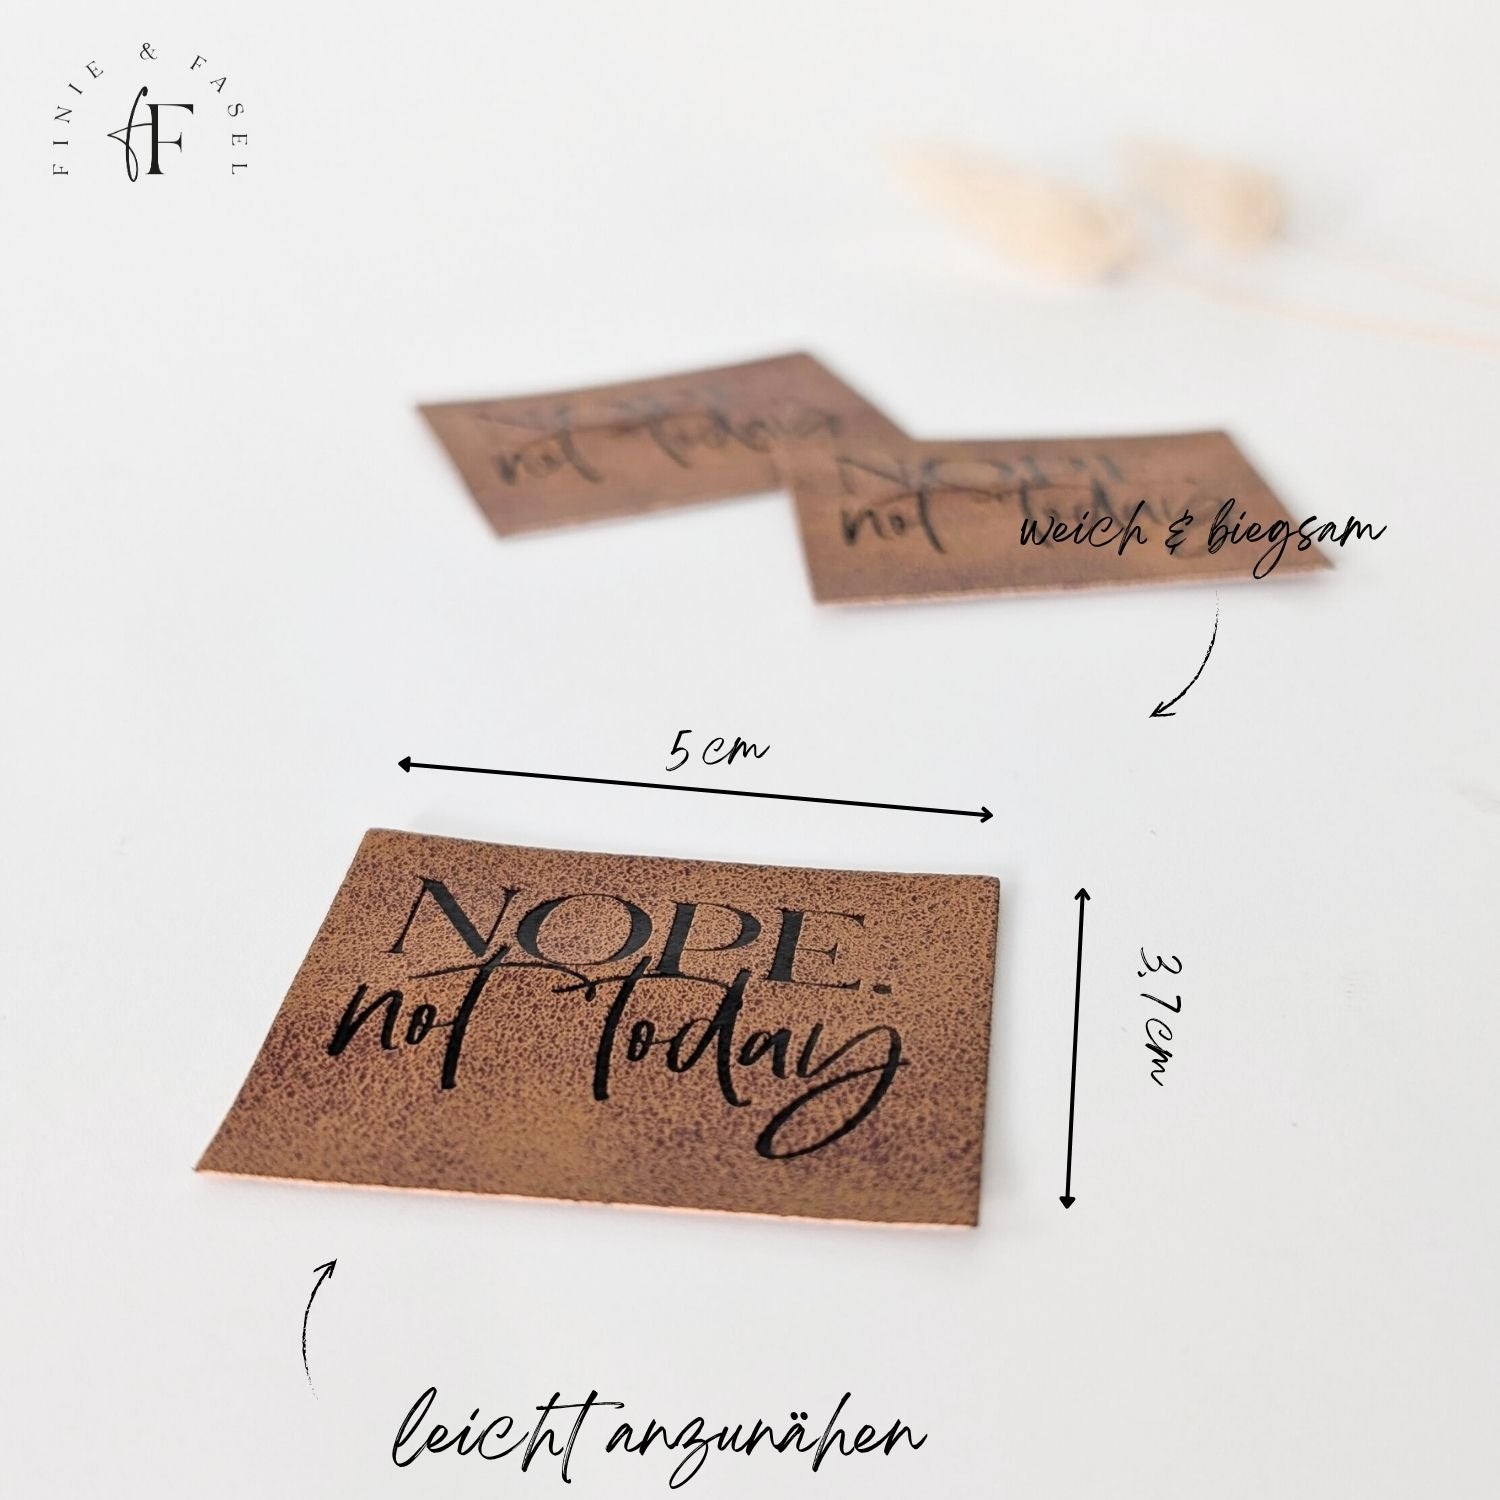 FINIE & FASEL
fF
NOPE.
not today
NOPE.
not today
weich & biegsam
5 cm
NOPE.
not today
3,7 cm
leicht anzunähen